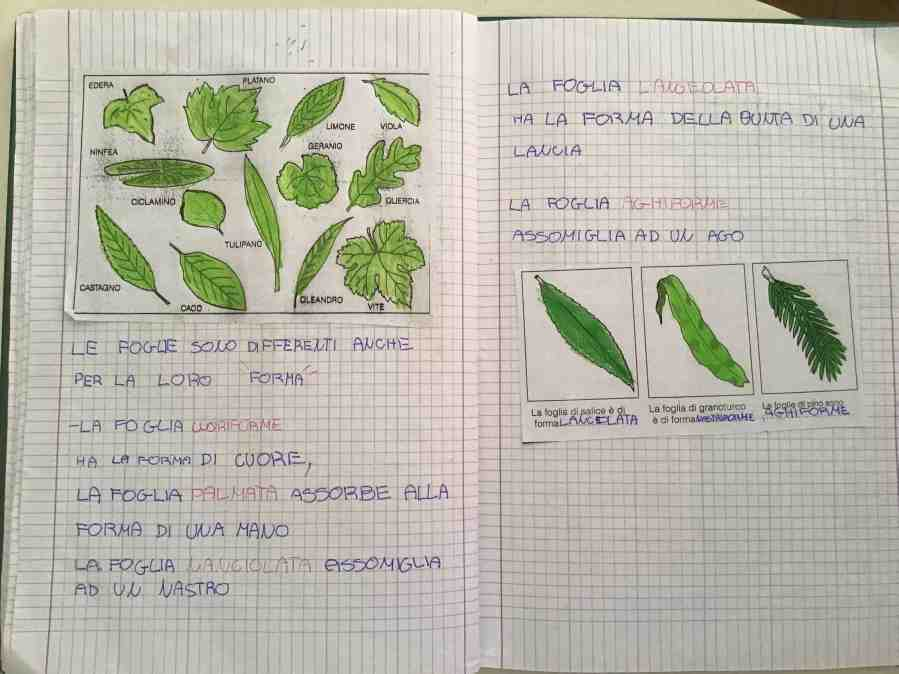 EDERA
PLATANO
LIMONE
VIOLA
NINFEA
GERANIO
CICLAMINO
QUERCIA
TULIPANO
CASTAGNO
CACO
OLEANDRO
VITE
LE FOGLIE SONO DIFFERENTI ANCHE
PER LA LORO FORMA
-LA FOGLIA CUORIFORME
HA LA FORMA DI CUORE,
LA FOGLIA PALMATA ASSORBE ALLA
FORMA DI UNA MANO
LA FOGLIA LANCIOLATA ASSOMIGLIA
AD UN NASTRO
LA FOGLIA LANCEOLATA
HA LA FORMA DELLA PUNTA DI UNA
LANCIA
LA FOGLIA AGHIFORME
ASSOMIGLIA AD UN AGO
La foglia di salice è di
forma LANCELATA
La foglia di granoturco
è di forma NASTRIFORME
Le foglie di pino sono
AGHIFORME